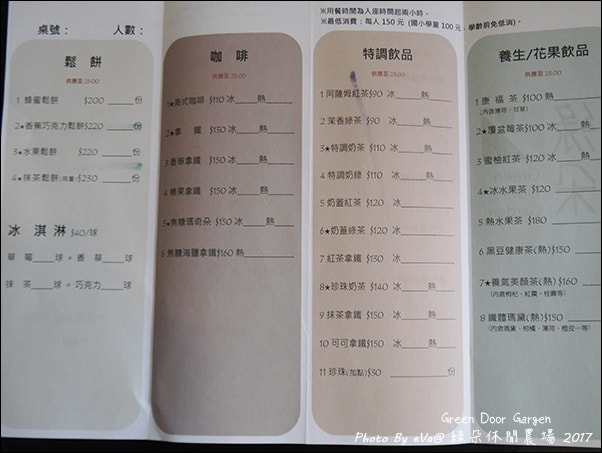 ※用餐時間為入座時間起兩小時。
※最低消費：每人150元 (國小學童100元，學齡前免低消)。
桌號： 人數：
鬆餅
供應至 23:00
1 蜂蜜鬆餅 $200 ____份
2★香蕉巧克力鬆餅$220 ____份
3★水果鬆餅 $220 ____份
4★抹茶鬆餅(限量)$230 ____份
冰淇淋 $40/球
草莓____球。香草____球
抹茶____球。巧克力____球
咖啡
供應至 23:00
1★美式咖啡 $110 冰____熱____
2★拿鐵 $130 冰____熱____
3 香草拿鐵 $150 冰____熱____
4 榛果拿鐵 $150 冰____熱____
5★焦糖瑪奇朵 $150 冰____熱____
6 焦糖海鹽拿鐵$160 熱____
特調飲品
供應至 23:00
1 阿薩姆紅茶$90 冰____熱____
2 茉香綠茶 $90 冰____熱____
3★特調奶茶 $110 冰____熱____
4 特調奶綠 $110 冰____熱____
5 奶蓋紅茶 $120 冰____
6★奶蓋綠茶 $120 冰____
7 紅茶拿鐵 $130 冰____
8★珍珠奶茶 $140 冰____熱____
9 抹茶拿鐵 $150 冰____熱____
10 可可拿鐵$150 冰____熱____
11 珍珠(加點)$30 ____份
養生/花果飲品
供應至 23:00
1 康福茶 $100 熱____
(內含薄荷、甘草)
2★覆盆莓茶$100 冰____熱
3 蜜柚紅茶 $120 冰____熱
4★冰水果茶 $120 冰____
5 熱水果茶 $180
6 黑豆健康茶(熱)$150
7★養氣美顏茶(熱) $160
(內含枸杞、紅棗、桂圓等)
8 纖體瑪黛(熱)$150
(內含瑪黛、柑橘、薄荷、橙皮…等)
Green Door Garden
Photo By eVa@ 綠朵休閒農場 2017